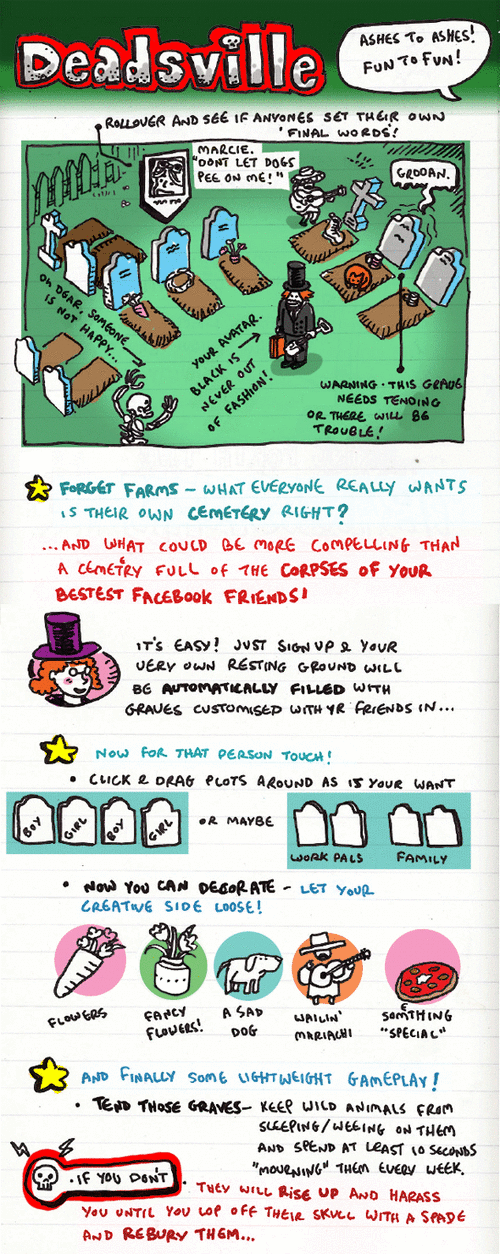 Deadsville
ASHES TO ASHES!
FUN TO FUN!
ROLLOVER AND SEE IF ANYONES SET THEIR OWN
'FINAL WORDS!
MARCIE.
"DONT LET DOGS
PEE ON ME!"
GROOAN.
OH DEAR. SOMEONE
IS NOT HAPPY...
YOUR AVATAR.
BLACK IS
NEVER OUT
OF FASHION!
WARNING - THIS GRAVE
NEEDS TENDING
OR THERE WILL BE
TROUBLE!
FORGET FARMS - WHAT EVERYONE REALLY WANTS
IS THEIR OWN CEMETERY RIGHT?
...AND WHAT COULD BE MORE COMPELLING THAN
A CEMETRY FULL OF THE CORPSES OF YOUR
BESTEST FACEBOOK FRIENDS!
IT'S EASY! JUST SIGN UP & YOUR
VERY OWN RESTING GROUND WILL
BE AUTOMATICALLY FILLED WITH
GRAVES CUSTOMISED WITH YR FRIENDS IN...
NOW FOR THAT PERSON TOUCH!
• CLICK & DRAG PLOTS AROUND AS IS YOUR WANT
BOY GIRL BOY GIRL
OR MAYBE
WORK PALS FAMILY
• NOW YOU CAN DECORATE - LET YOUR
CREATIVE SIDE LOOSE!
FLOWERS
FANCY
FLOWERS!
A SAD
DOG
WAILIN'
MARIACHI
SOMETHING
"SPECIAL"
AND FINALLY SOME LIGHTWEIGHT GAMEPLAY!
• TEND THOSE GRAVES- KEEP WILD ANIMALS FROM
SLEEPING/WEEING ON THEM
AND SPEND AT LEAST 10 SECONDS
"MOURNING" THEM EVERY WEEK.
• IF YOU DON'T
• THEY WILL RISE UP AND HARASS
YOU UNTIL YOU LOP OFF THEIR SKULL WITH A SPADE
AND REBURY THEM...